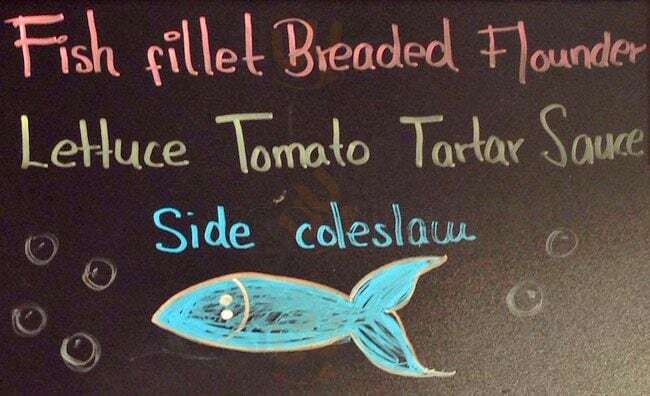 Fish fillet Breaded Flounder
Lettuce Tomato Tartar Sauce
Side coleslaw